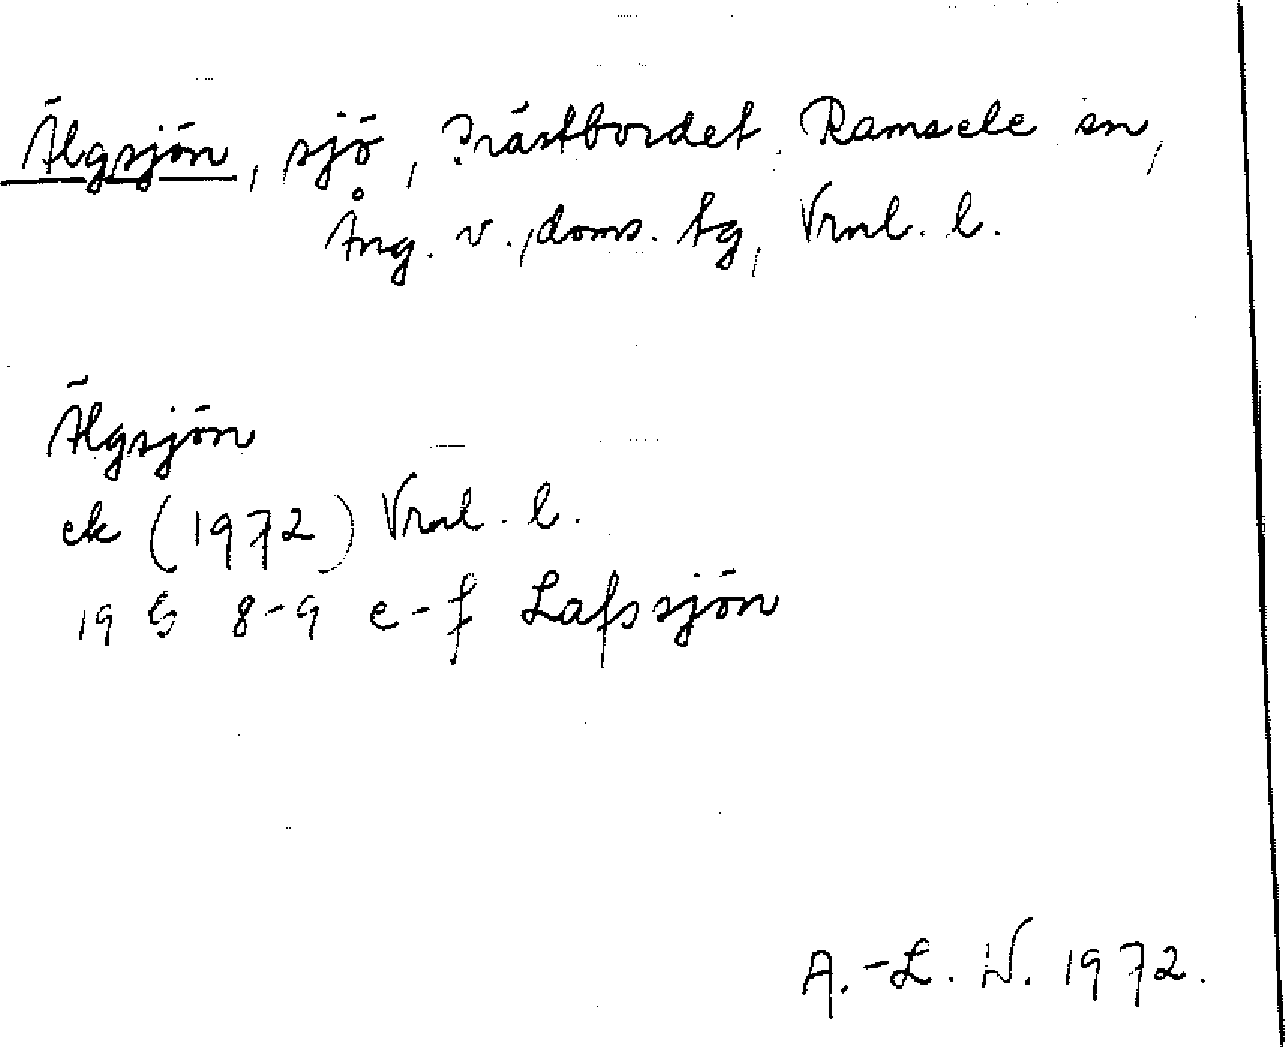 Älgsjön, sjö, Prästbordet, Ramsele sn,
Ång. v., doms. tg, Vrnl. l.
Älgsjön
ek (1972) Vrnl. l.
19 G 8-9 e-f Lafssjön
A.-L. W. 1972.